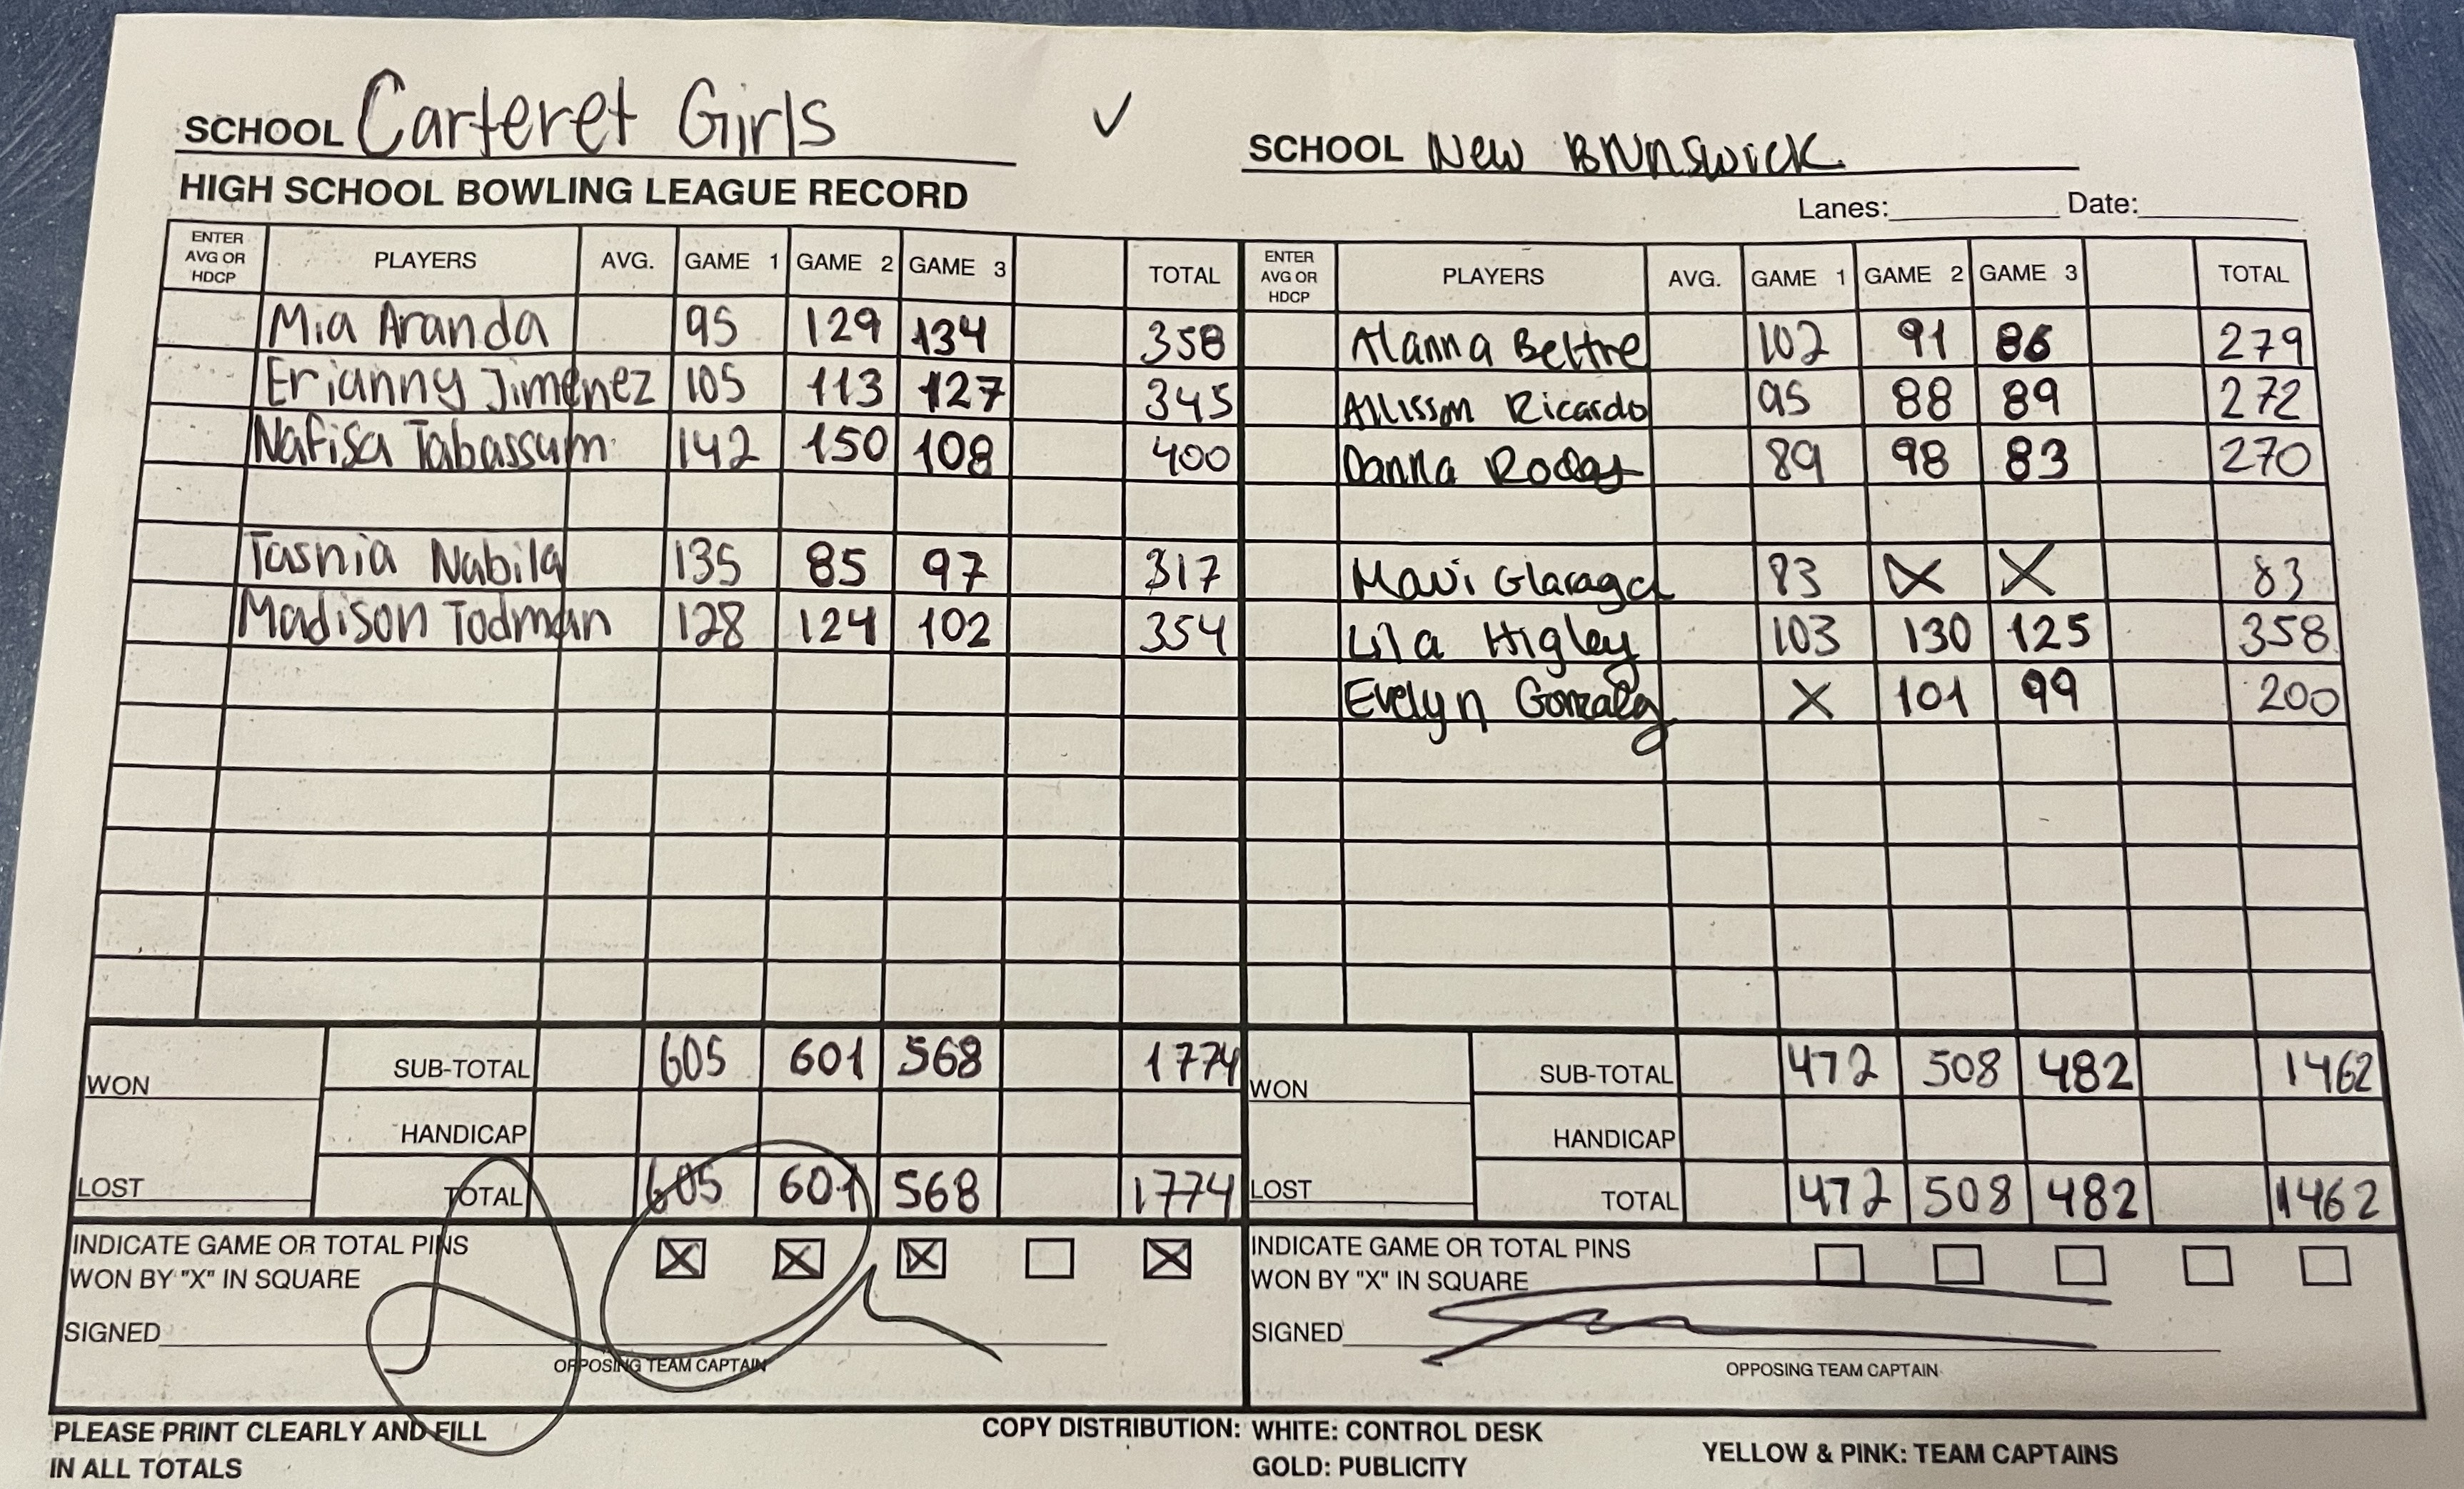 SCHOOL Carteret Girls ✓ SCHOOL New Brunswick
HIGH SCHOOL BOWLING LEAGUE RECORD Lanes: Date:
ENTER AVG OR HDCP PLAYERS AVG. GAME 1 GAME 2 GAME 3 TOTAL ENTER AVG OR HDCP PLAYERS AVG. GAME 1 GAME 2 GAME 3 TOTAL
Mia Aranda 95 129 134 358 Alanna Beltre 102 91 86 279
Erianny Jimenez 105 113 127 345 Allisson Ricardo 95 88 89 272
Nafisa Tabassum 142 150 108 400 Danna 89 98 83 270
Tasnia Nabila 135 85 97 317 Mavi 83 X X 83
Madison Todman 128 124 102 354 Lila Higley 103 130 125 358
Evelyn X 101 99 200
WON SUB-TOTAL 605 601 568 1774 WON SUB-TOTAL 472 508 482 1462
HANDICAP HANDICAP
LOST TOTAL 605 601 568 1774 LOST TOTAL 472 508 482 1462
INDICATE GAME OR TOTAL PINS INDICATE GAME OR TOTAL PINS
WON BY "X" IN SQUARE X X X X WON BY "X" IN SQUARE
SIGNED SIGNED
OPPOSING TEAM CAPTAIN OPPOSING TEAM CAPTAIN
PLEASE PRINT CLEARLY AND FILL COPY DISTRIBUTION: WHITE: CONTROL DESK YELLOW & PINK: TEAM CAPTAINS
IN ALL TOTALS GOLD: PUBLICITY